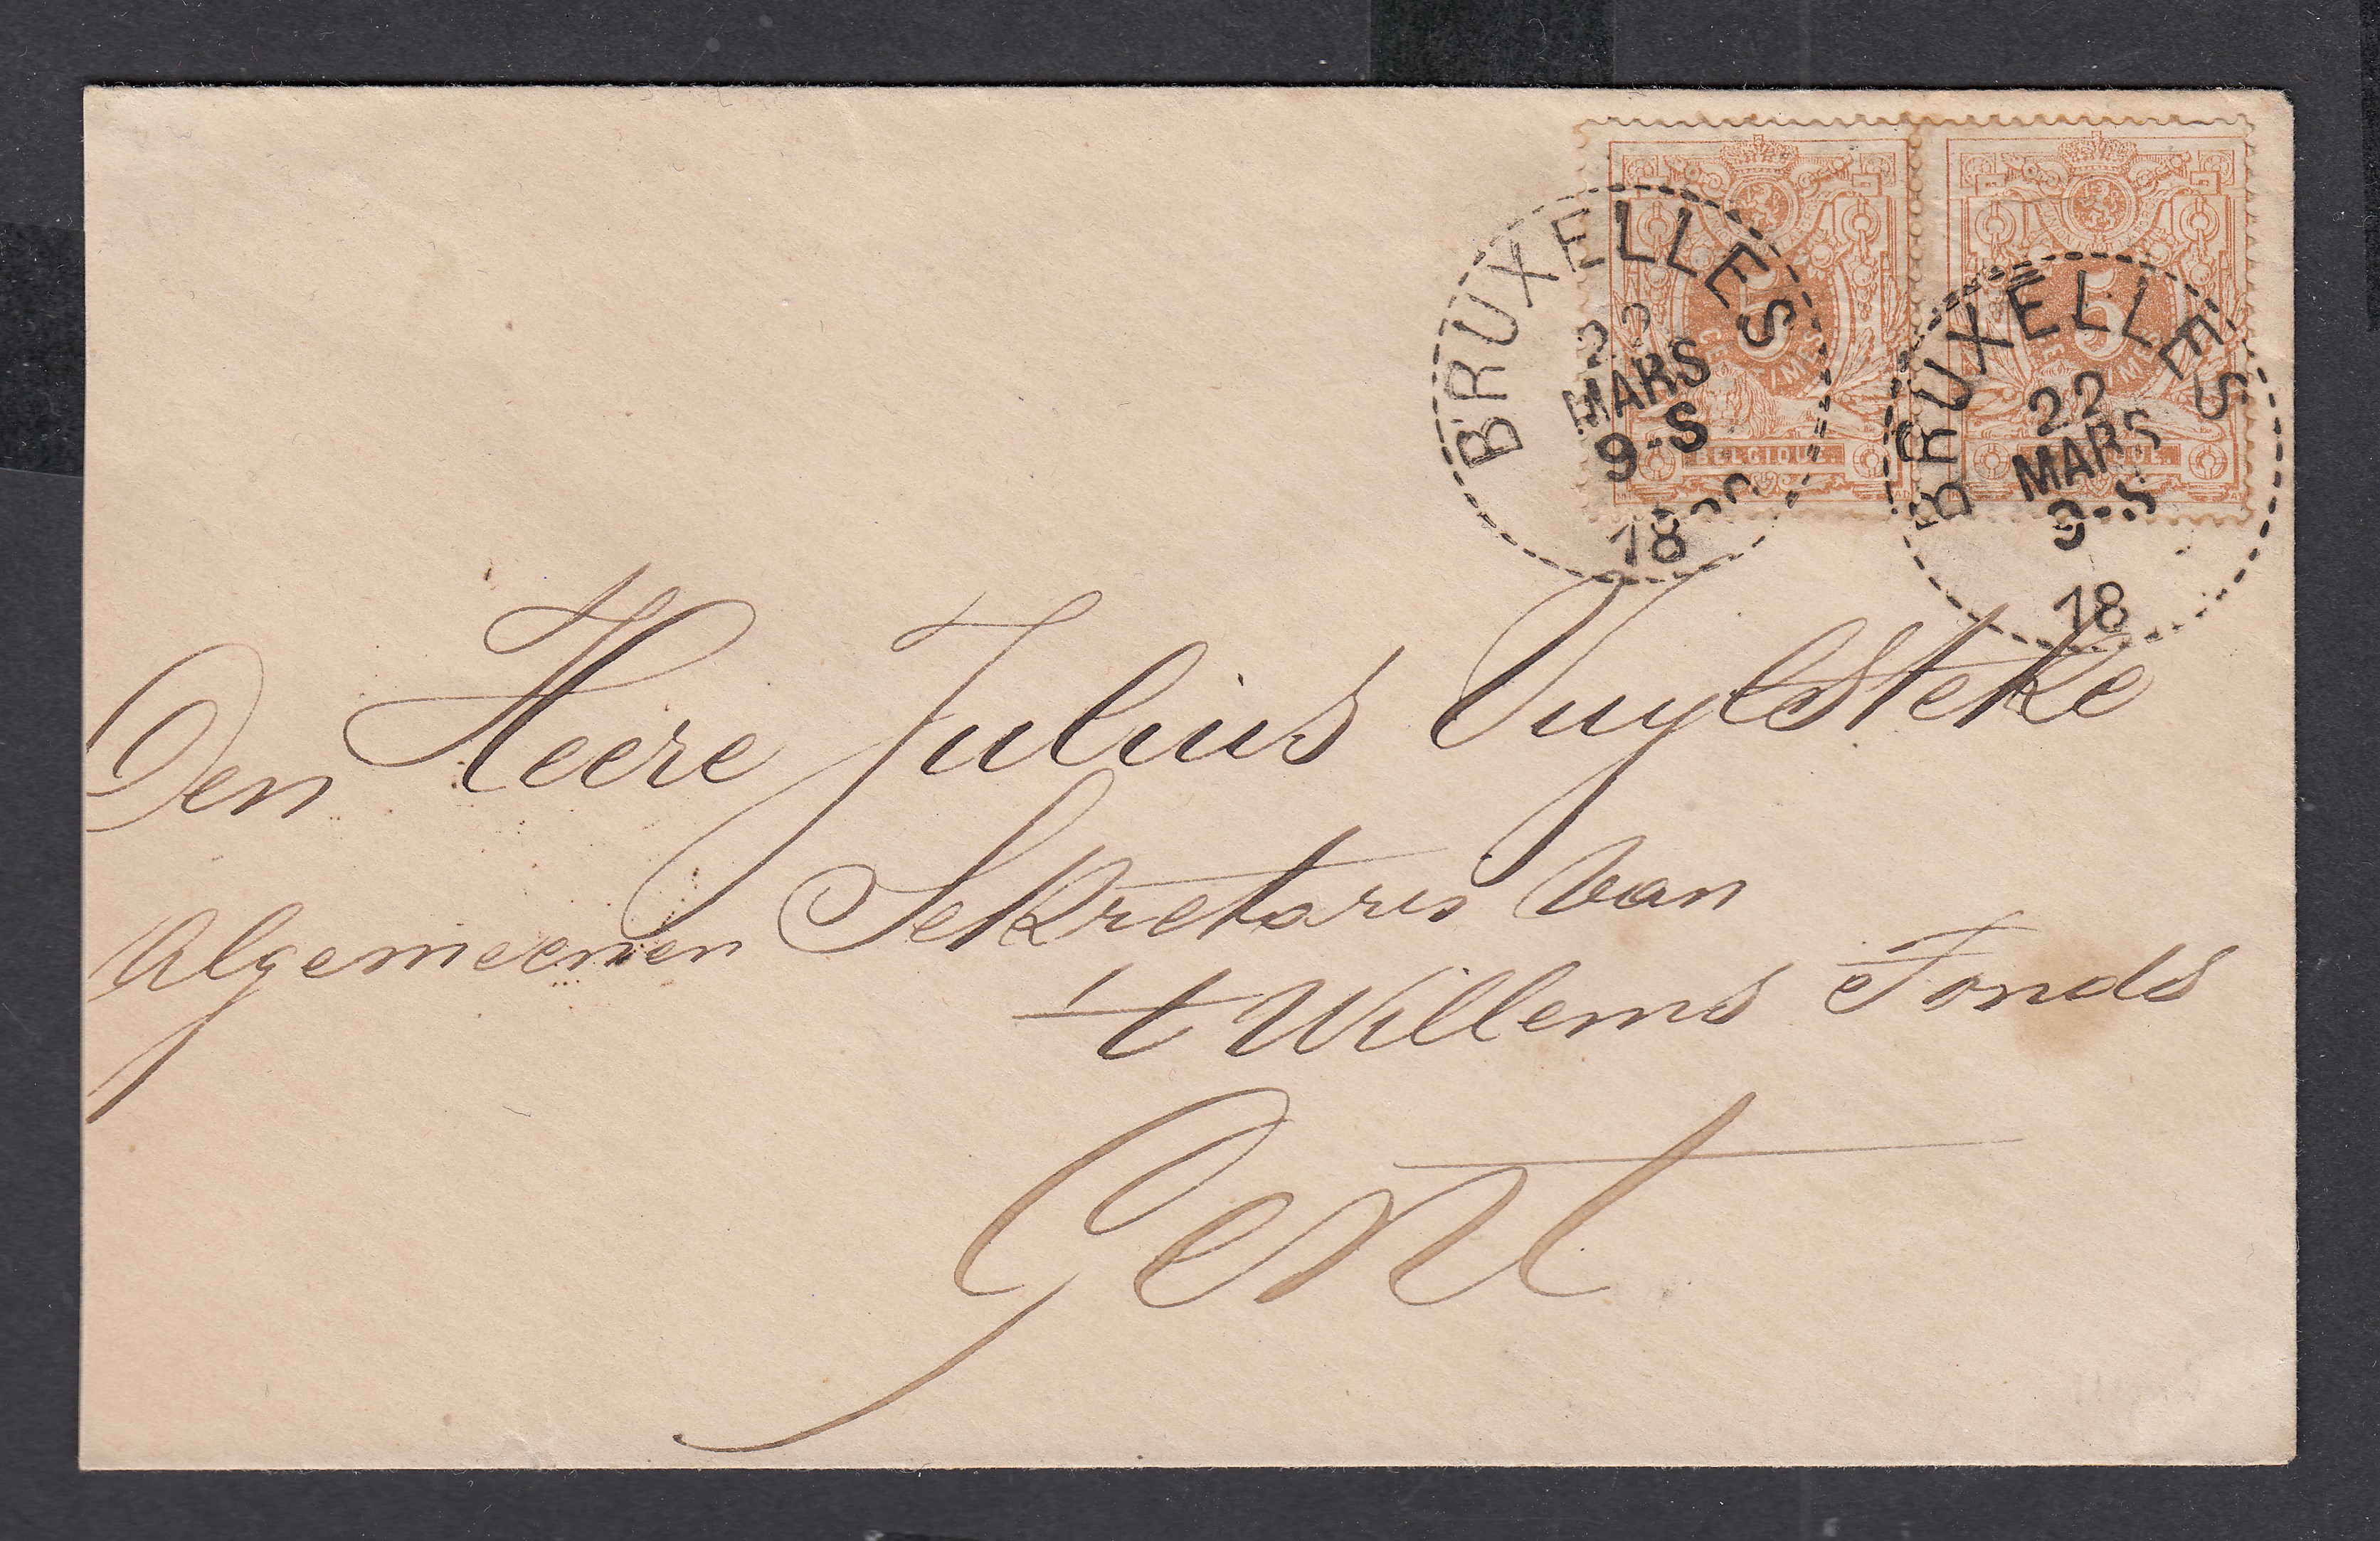 BRUXELLES
22
MARS
9-S
18
5
BELGIQUE.
BRUXELLES
22
MARS
9-S
18
5
Den Heere Julius Vuylsteke
Algemeenen Sekretaris van
't Willems Fonds
Gent